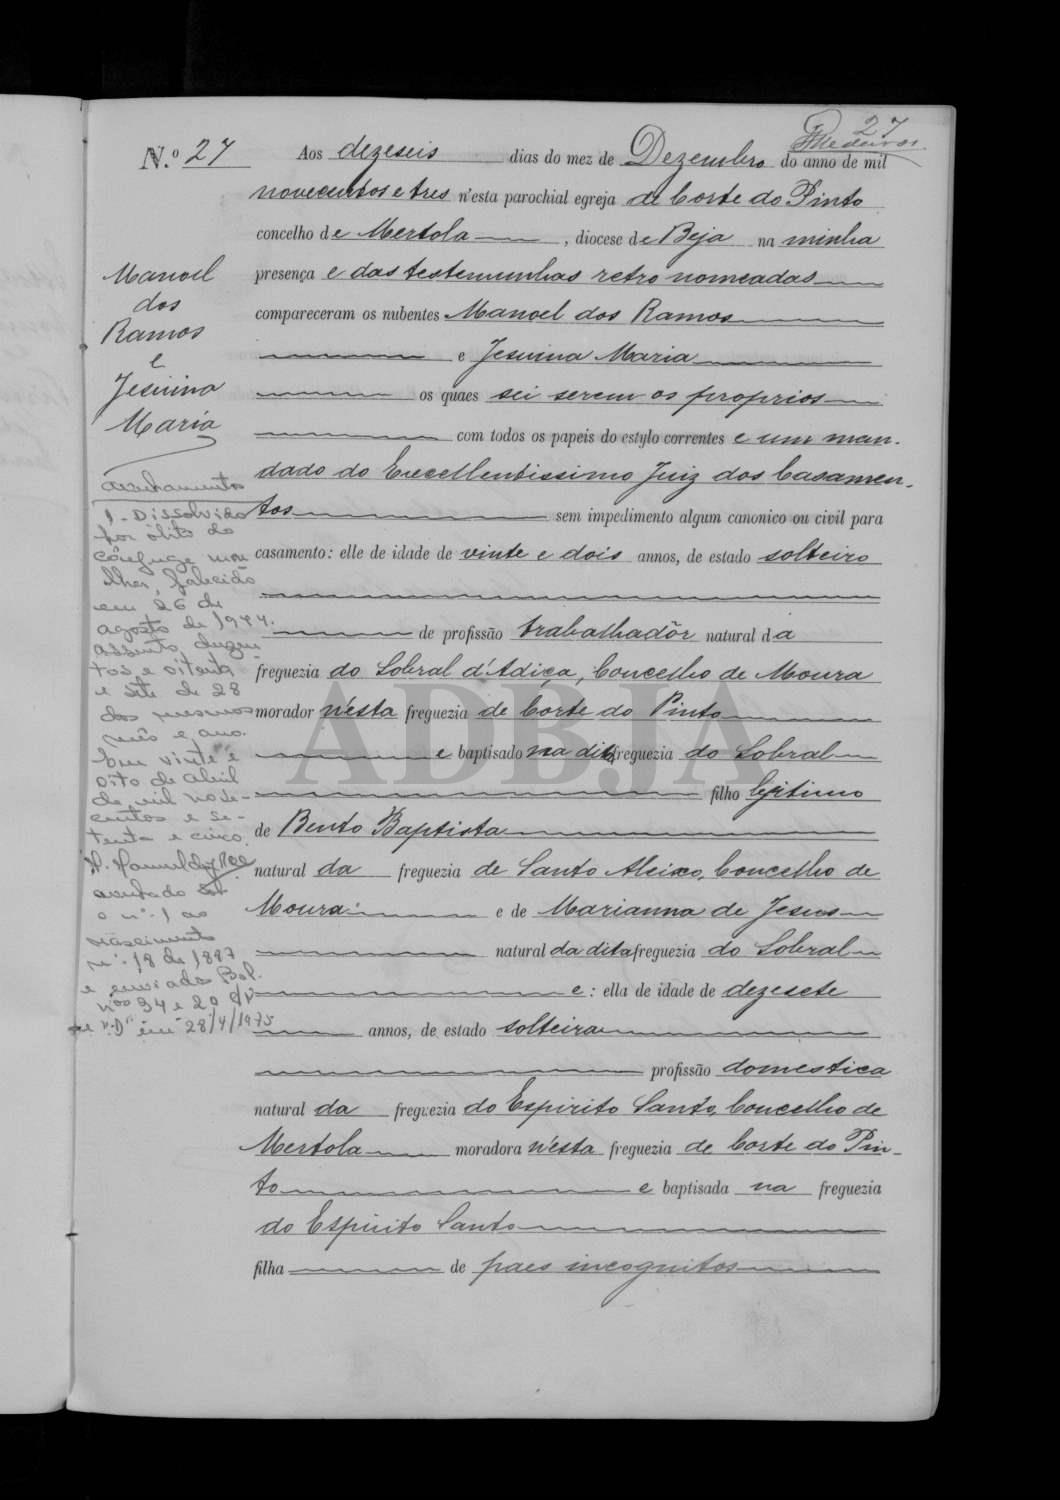 27
Medeiros
N.º 27
Aos dezeseis dias do mez de Dezembro do anno de mil
novecentos e tres n'esta parochial egreja de Corte do Pinto
concelho de Mertola, diocese de Beja na minha
presença e das testemunhas retro nomeadas
compareceram os nubentes Manoel dos Ramos
e Jesuina Maria
os quaes sei serem os proprios
com todos os papeis do estylo correntes e um man-
dado do Excellentissimo Juiz dos Casamen-
tos sem impedimento algum canonico ou civil para
casamento: elle de idade de vinte e dois annos, de estado solteiro
de profissão trabalhadôr natural da
freguezia do Sobral d'Adiça, Concelho de Moura
morador n'esta freguezia de Corte do Pinto
e baptisado na dita freguezia do Sobral
filho legitimo
de Bento Baptista
natural da freguezia de Santo Aleixo, Concelho de
Moura e de Marianna de Jesus
natural da dita freguezia do Sobral
e: ella de idade de dezesete
annos, de estado solteira
profissão domestica
natural da freguezia do Espirito Santo, Concelho de
Mertola moradora n'esta freguezia de Corte do Pin-
to e baptisada na freguezia
do Espirito Santo
filha de paes incognitos
Manoel
dos
Ramos
e
Jesuina
Maria
Averbamentos
1 - Dissolvido
por óbito do
cônjuge mu
lher, falecido
em 26 de
agosto de 1944.
assento duzen
tos e oitenta
e sete de 28
dos mesmos
mês e ano.
Em vinte e
oito de abril
de mil nove-
centos e se-
tenta e cinco.
averbado sob
o nº. 1 ao
nascimento
nº. 18 de 1887
e enviado Bol.
nºos 94 e 20
e "D" em 28/4/1975
ADBJA